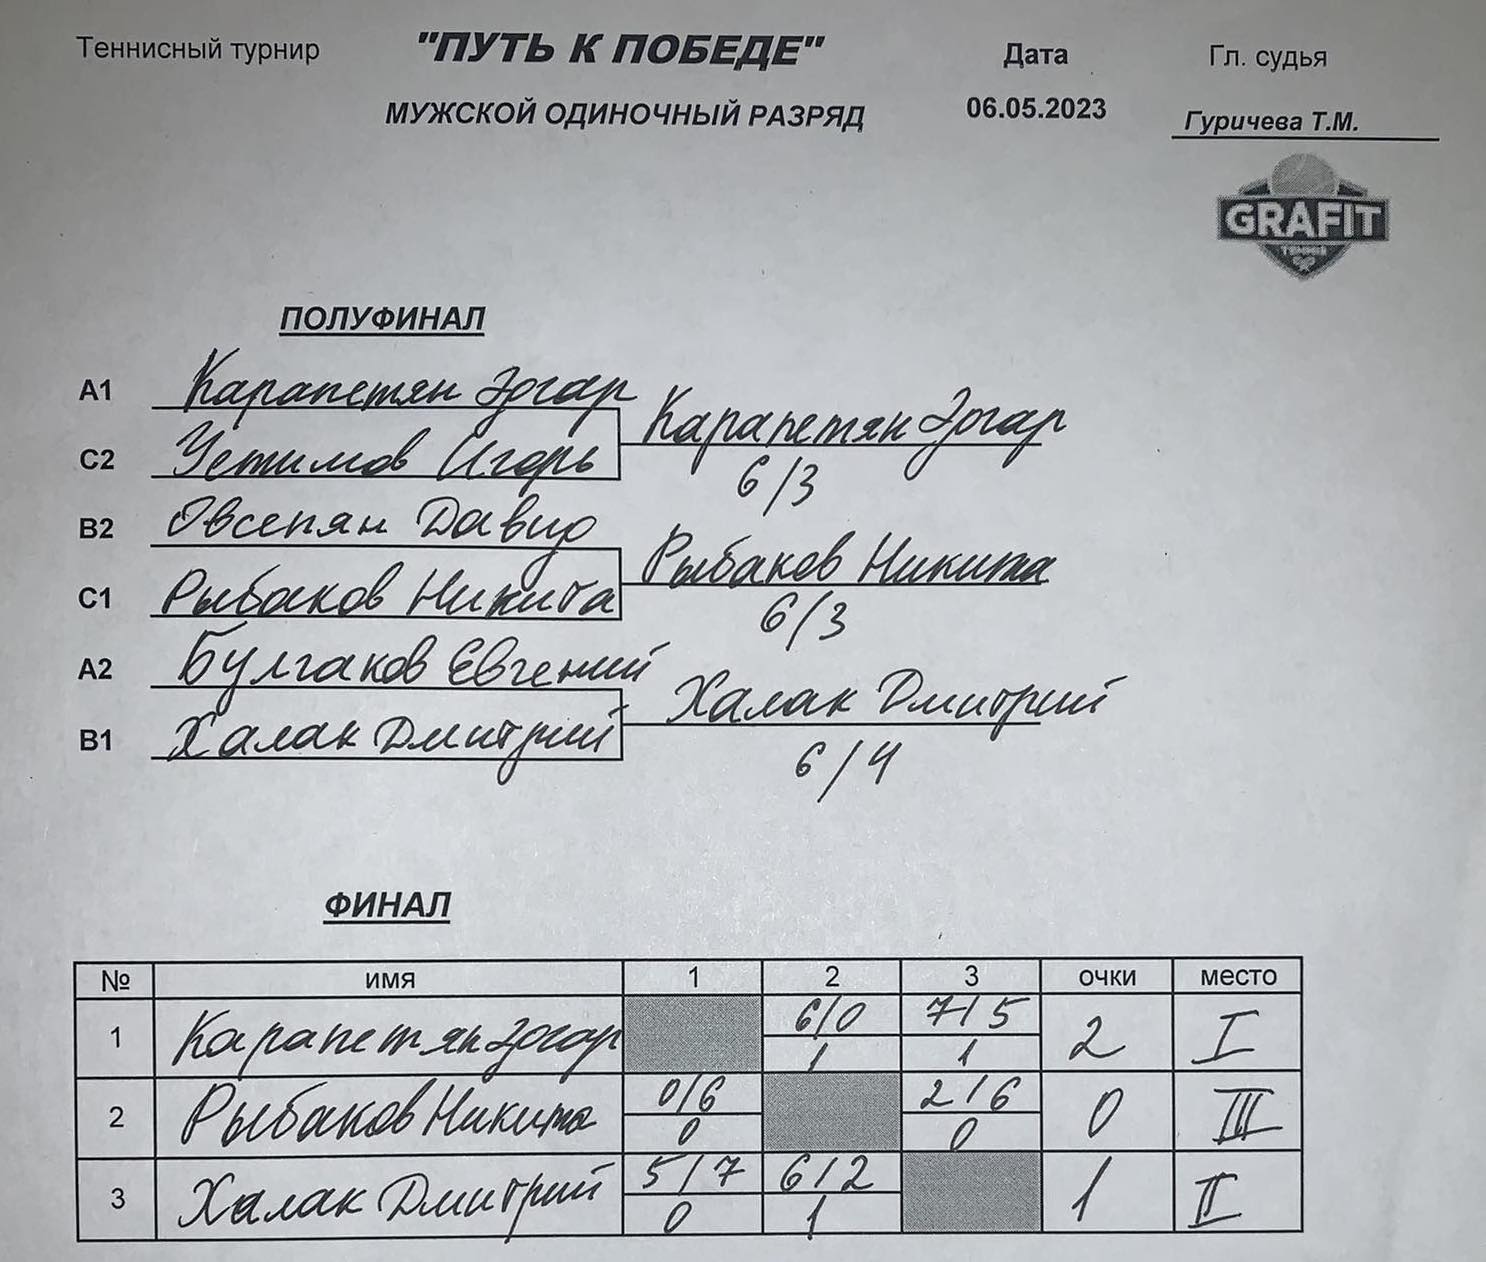 Теннисный турнир "ПУТЬ К ПОБЕДЕ" Дата Гл. судья
МУЖСКОЙ ОДИНОЧНЫЙ РАЗРЯД 06.05.2023 Гуричева Т.М.
GRAFIT
ТЕННИС
ПОЛУФИНАЛ
A1 Карапетян Эдгар
Карапетян Эдгар
C2 Устимов Игорь
6/3
B2 Овсепян Давид
Рыбаков Никита
C1 Рыбаков Никита
6/3
A2 Булгаков Евгений
Халак Дмитрий
B1 Халак Дмитрий
6/4
ФИНАЛ
№ имя 1 2 3 очки место
1 Карапетян Эдгар 6/0 7/5 2 I
1 1
2 Рыбаков Никита 0/6 2/6 0 III
0 0
3 Халак Дмитрий 5/7 6/2 1 II
0 1